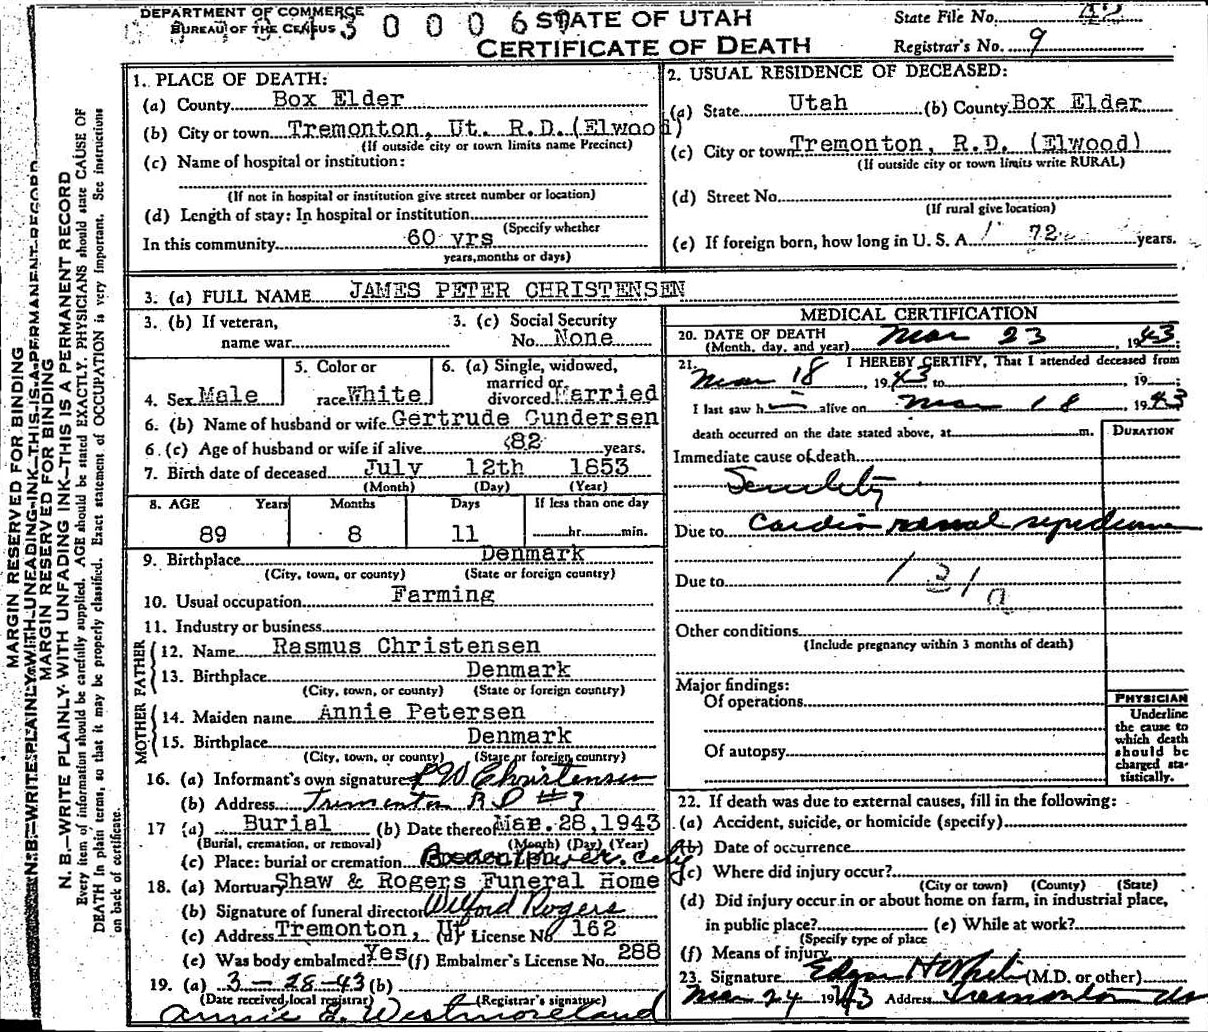 DEPARTMENT OF COMMERCE
BUREAU OF THE CENSUS
STATE OF UTAH
CERTIFICATE OF DEATH
State File No.
Registrar's No. 9
MARGIN RESERVED FOR BINDING
N. B.—WRITE PLAINLY WITH UNFADING INK—THIS IS A PERMANENT RECORD
MARGIN RESERVED FOR BINDING
N. B.—WRITE PLAINLY WITH UNFADING INK—THIS IS A PERMANENT RECORD
Every item of information should be carefully supplied. AGE should be stated EXACTLY. PHYSICIANS should state CAUSE OF
DEATH in plain terms, so that it may be properly classified. Exact statement of OCCUPATION is very important. See instructions
on back of certificate.
1. PLACE OF DEATH:
(a) County Box Elder
(b) City or town Tremonton, Ut. R.D. (Elwood)
(If outside city or town limits name Precinct)
(c) Name of hospital or institution:
(If not in hospital or institution give street number or location)
(d) Length of stay: In hospital or institution
(Specify whether
In this community 60 yrs
years, months or days)
2. USUAL RESIDENCE OF DECEASED:
(a) State Utah (b) County Box Elder
(c) City or town Tremonton, R.D. (Elwood)
(If outside city or town limits write RURAL)
(d) Street No.
(If rural give location)
(e) If foreign born, how long in U. S. A. 72 years.
3. (a) FULL NAME JAMES PETER CHRISTENSEN
3. (b) If veteran, name war
3. (c) Social Security No. None
4. Sex Male
5. Color or race White
6. (a) Single, widowed, married or divorced Married
6. (b) Name of husband or wife Gertrude Gundersen
6. (c) Age of husband or wife if alive 82 years.
7. Birth date of deceased July 12th 1853
(Month) (Day) (Year)
8. AGE Years Months Days If less than one day
89 8 11 hr. min.
9. Birthplace Denmark
(City, town, or county) (State or foreign country)
10. Usual occupation Farming
11. Industry or business
FATHER
12. Name Rasmus Christensen
13. Birthplace Denmark
(City, town, or county) (State or foreign country)
MOTHER
14. Maiden name Annie Petersen
15. Birthplace Denmark
(City, town, or county) (State or foreign country)
16. (a) Informant's own signature P W Christensen
(b) Address Tremonton R D #3
17 (a) Burial (b) Date thereof Mar. 28, 1943
(Burial, cremation, or removal) (Month) (Day) (Year)
(c) Place: burial or cremation City
18. (a) Mortuary Shaw & Rogers Funeral Home
(b) Signature of funeral director Wilford Rogers
(c) Address Tremonton, Ut (d) License No 162
(e) Was body embalmed? Yes (f) Embalmer's License No. 288
19. (a) 3-28-43 (b)
(Date received local registrar) (Registrar's signature)
Annie L. Westmoreland
MEDICAL CERTIFICATION
20. DATE OF DEATH
(Month, day, and year) Mar 23, 1943;
21. I HEREBY CERTIFY, That I attended deceased from
Mar 18, 1943 to , 19 ;
I last saw h alive on Mar 18 1943
death occurred on the date stated above, at m.
DURATION
Immediate cause of death
Senility
Due to Cardio renal
Due to 131a
Other conditions
(Include pregnancy within 3 months of death)
Major findings:
Of operations
Of autopsy
PHYSICIAN
Underline
the cause to
which death
should be
charged sta-
tistically.
22. If death was due to external causes, fill in the following:
(a) Accident, suicide, or homicide (specify)
(b) Date of occurrence
(c) Where did injury occur?
(City or town) (County) (State)
(d) Did injury occur in or about home on farm, in industrial place,
in public place? (e) While at work?
(Specify type of place
(f) Means of injury
23. Signature Edgar H White (M.D. or other)
Mar 24 1943 Address Tremonton Ut